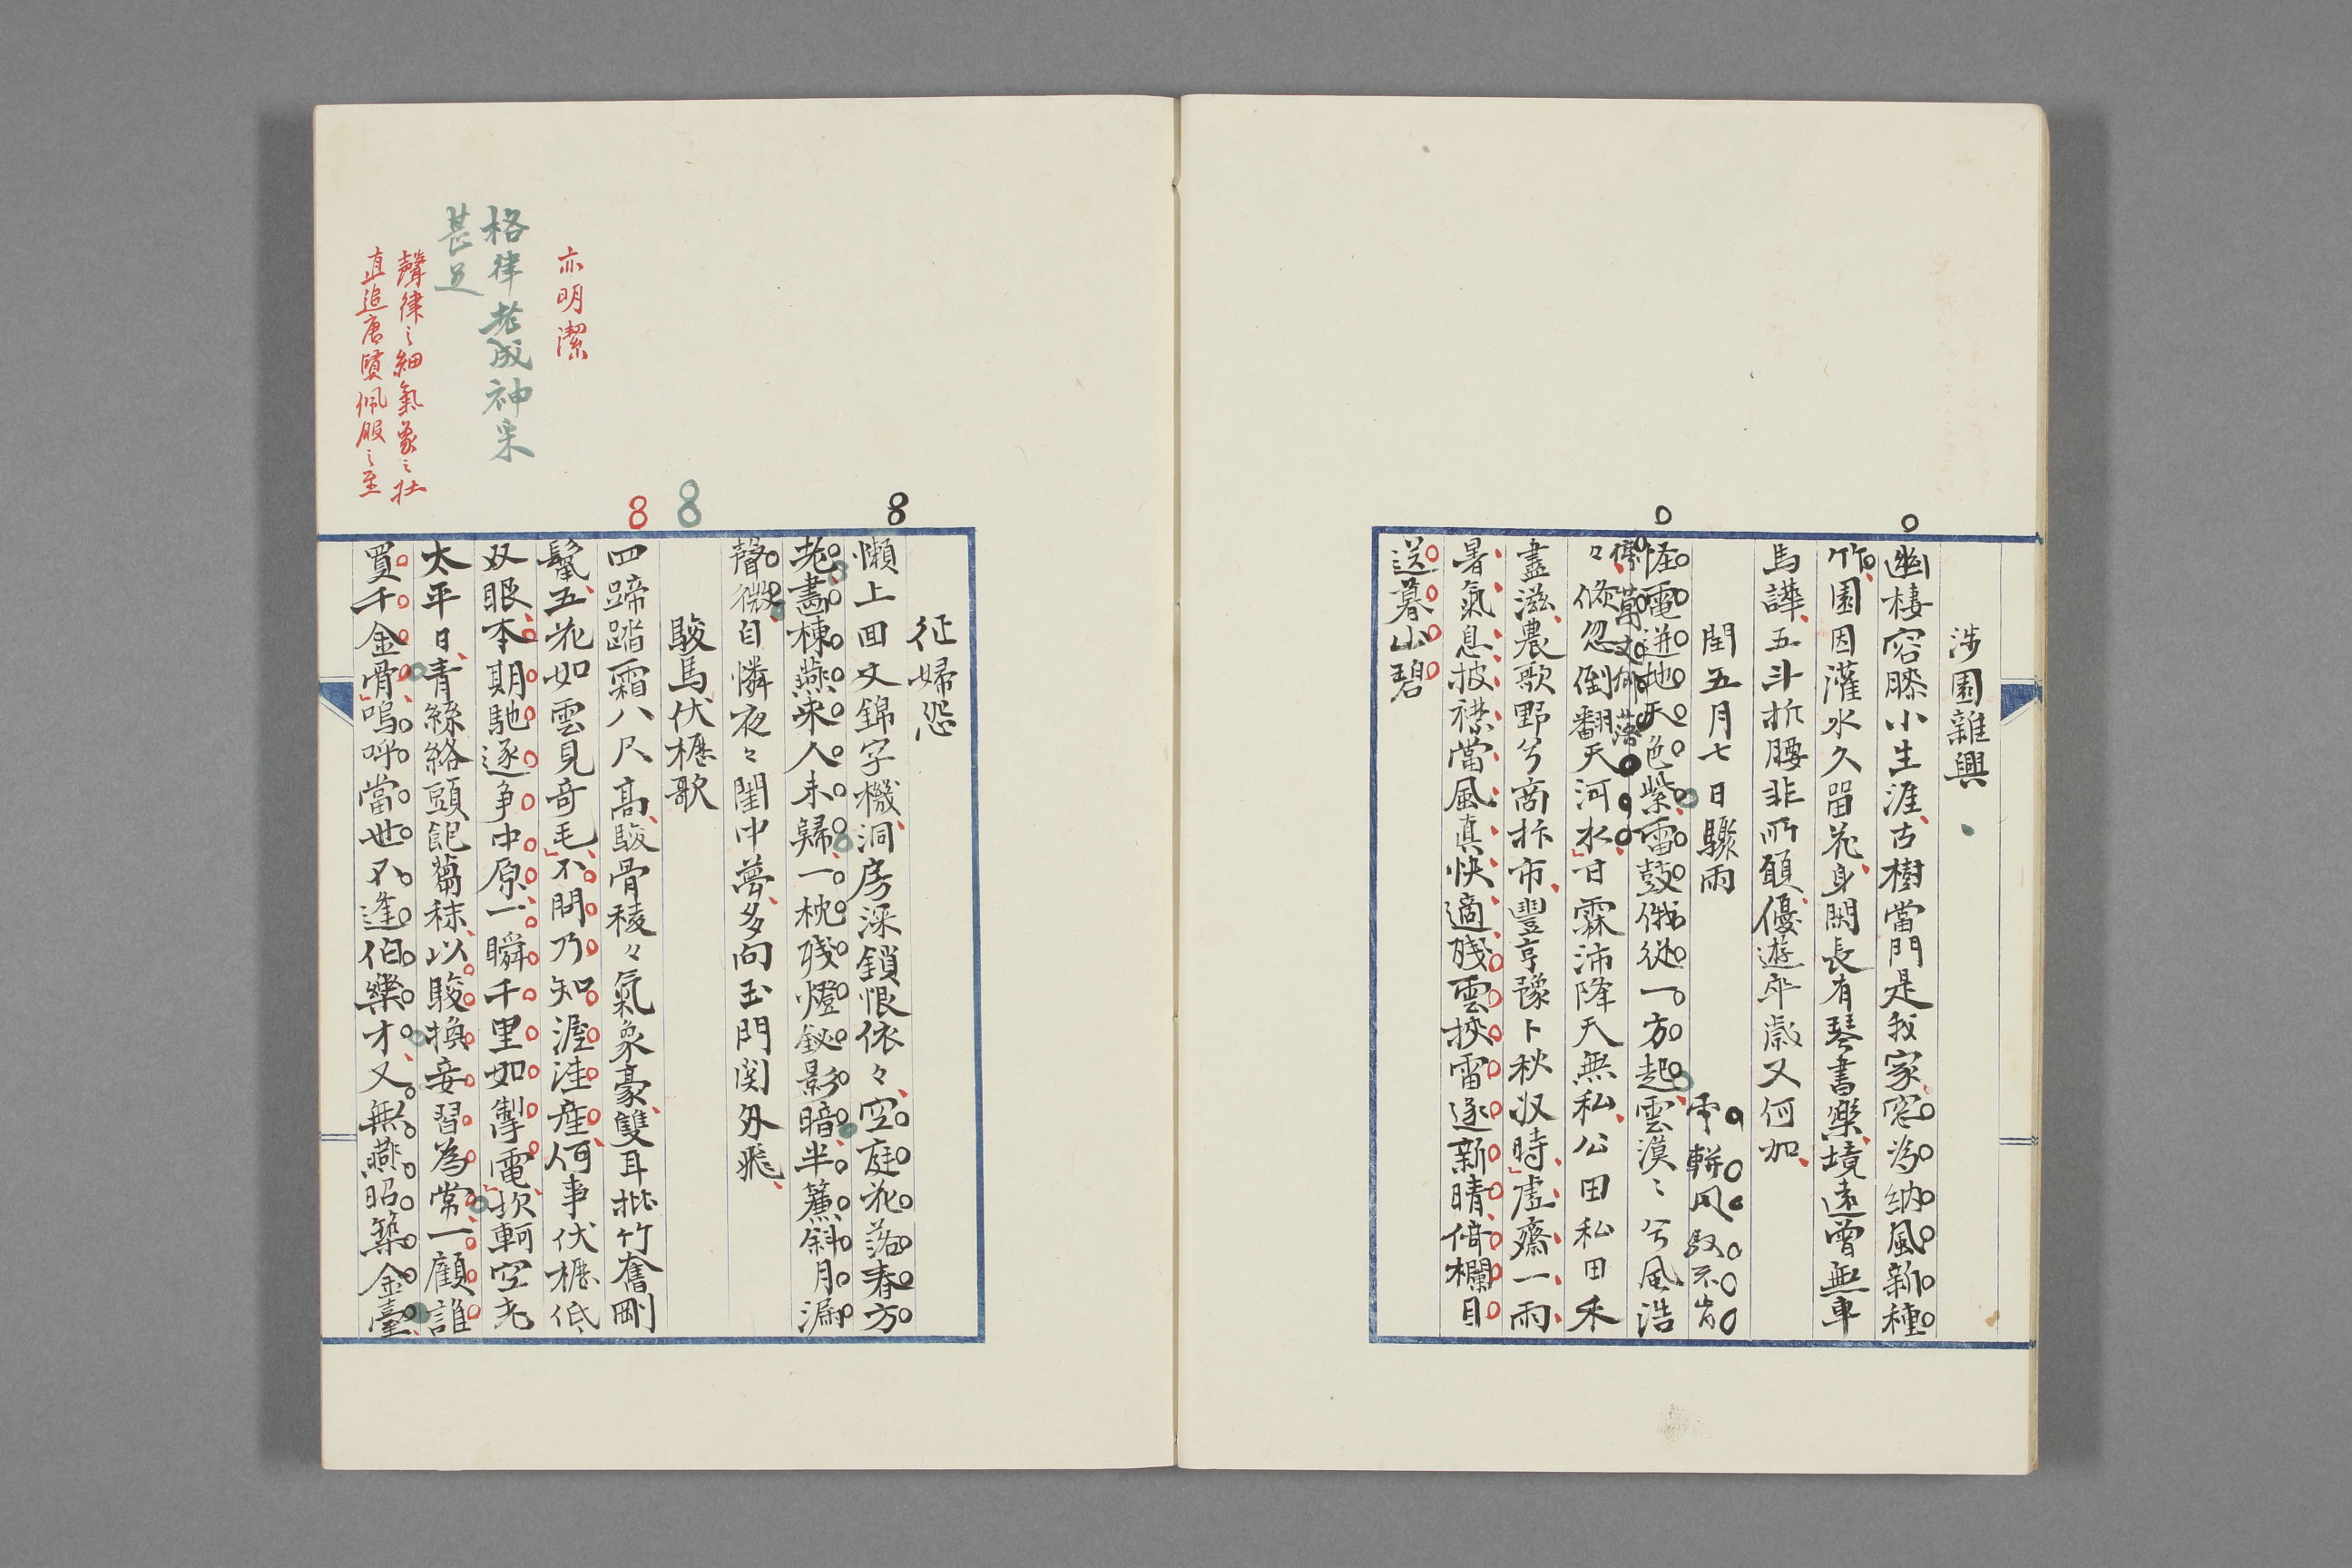 涉園雜興
幽棲容膝小生涯古樹當門是我家窓為納風新種
竹園因灌水久留花身閑長有琴書樂境遠曾無車
馬譁五斗折腰非所願優遊卒歲又何加
閏五月七日驟雨
雷軿風馭不肯
怪電迸地天色紫雷鼓俄從一方起雲漠〻兮風浩
停萬丈倒落
々倏忽倒翻天河水甘霖沛降天無私公田私田禾
盡滋農歌野兮商抃市豐亨豫卜秋収時虚齋一雨
暑氣息披襟當風真快適殘雲挾雷逐新晴倚欄目
送暮山碧
征婦怨
懶上回文錦字機洞房深鎖恨依々空庭花落春方
老畫棟燕来人未歸一枕殘燈釵影暗半簾斜月漏
聲微自憐夜々閨中夢多向玉門関外飛
駿馬伏櫪歌
四蹄踏霜八尺高駿骨稜々氣象豪雙耳批竹奮剛
鬣五花如雲見奇毛不問乃知渥洼産何事伏櫪低
双眼本期馳逐争中原一瞬千里如掣電坎軻空老
太平日青絲絡頭飽蒭秣以駿換妾習為常一顧誰
買千金骨嗚呼當世不逢伯樂才又無燕昭築金臺
亦明潔
格律老成神采
甚足
聲律之細氣象之壮
直追唐賢佩服之至